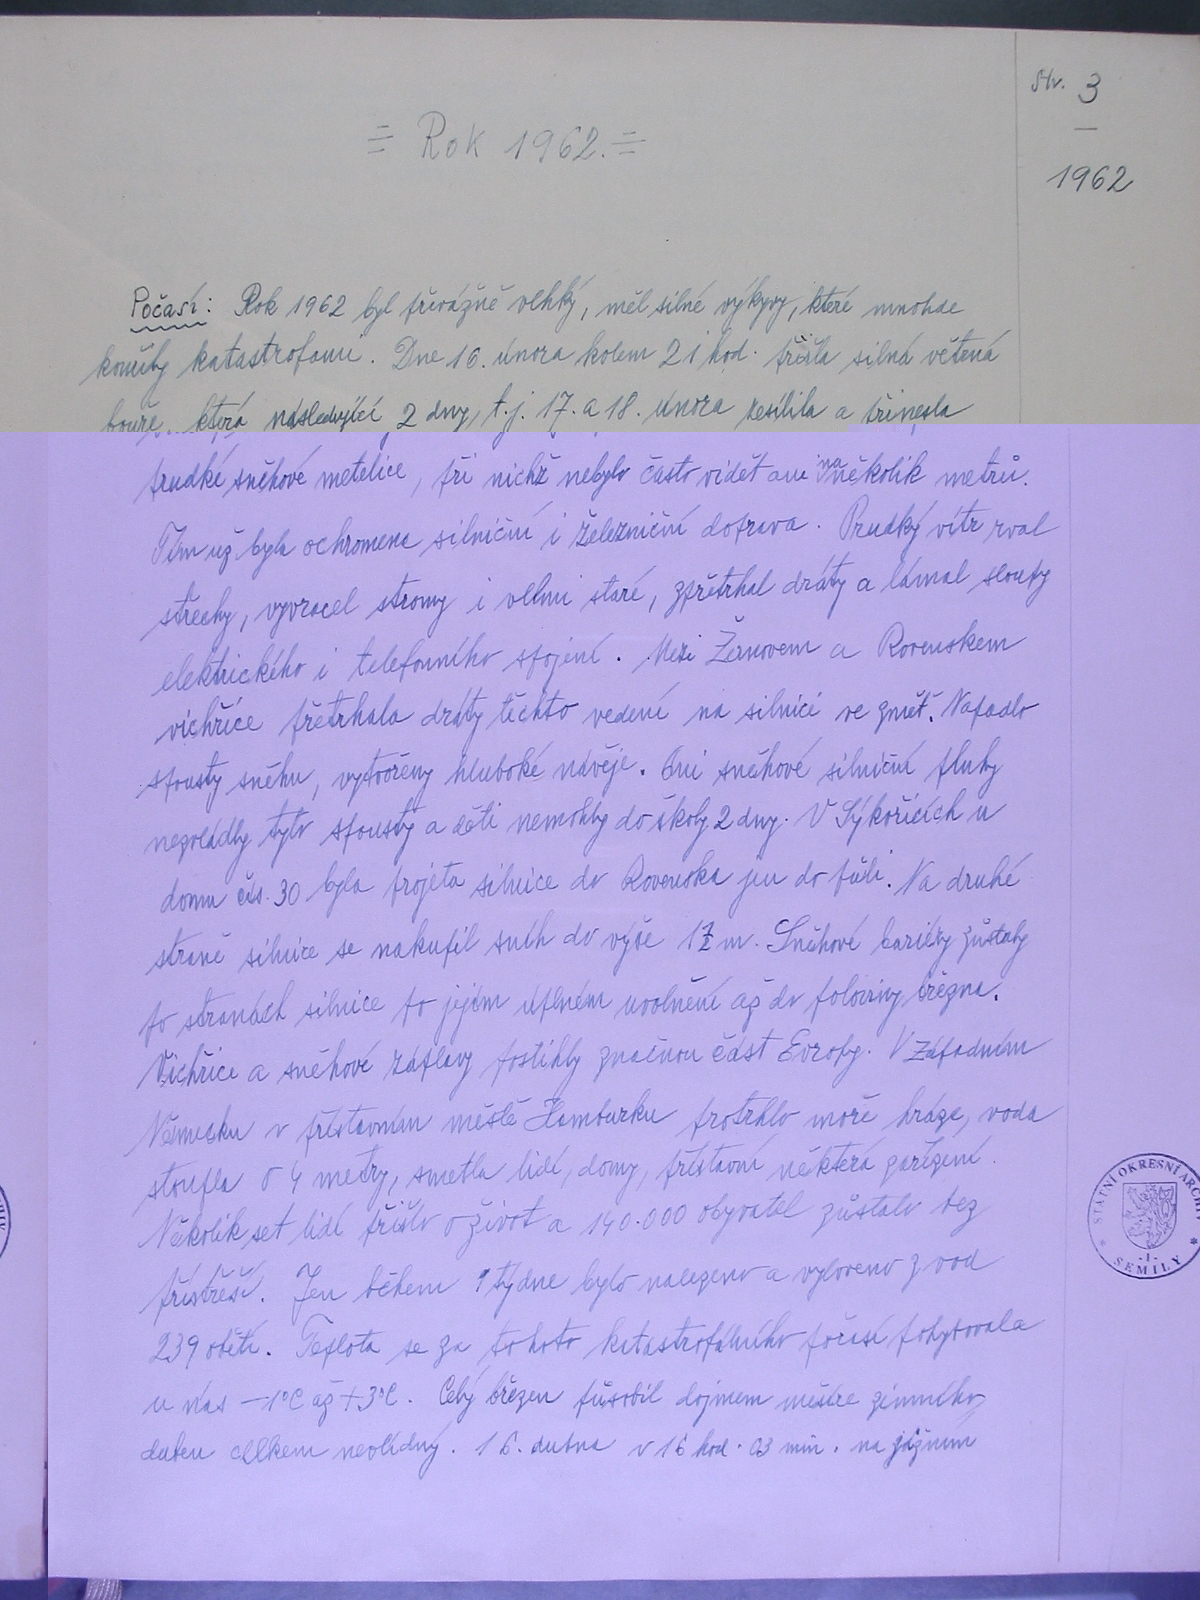 Str. 3
1962
= Rok 1962. =
Počasí: Rok 1962 byl převážně vlhký, měl silné výkyvy, které mnohde
končily katastrofami. Dne 16. února kolem 21 hod. přišla silná větrná
bouře, která následující 2 dny, t.j. 17. a 18. února zesílila a přinesla
prudké sněhové metelice, při nichž nebylo často vidět ani na několik metrů.
Tím už byla ochromena silniční i železniční doprava. Prudký vítr rval
střechy, vyvracel stromy i velmi staré, zpřetrhal dráty a lámal sloupy
elektrického i telefonního spojení. Mezi Žernovem a Rovenskem
vichřice přetrhala dráty těchto vedení na silnici ve změť. Napadlo
spousty sněhu, vytvořeny hluboké návěje. Ani sněhové silniční pluhy
nezvládly tyto spousty a děti nemohly do školy 2 dny. V Sýkořicích u
domu čís. 30 byla projeta silnice do Rovenska jen do půli. Na druhé
straně silnice se nakupil sníh do výše m. Sněhové bariéry zůstaly
po stranách silnice po jejím úplném uvolnění až do poloviny března.
Vichřice a sněhové záplavy postihly značnou část Evropy. V Západním
Německu v přístavním městě Hamburku protrhlo moře hráze, voda
stoupla o 4 metry, smetla lidi, domy, přístavní některá zařízení.
Několik set lidí přišlo o život a 140.000 obyvatel zůstalo bez
přístřeší. Jen během 1 týdne bylo nalezeno a vyloveno z vod
239 obětí. Teplota se za tohoto katastrofálního počasí pohybovala
u nás -1°C až +3°C. Celý březen působil dojmem měsíce zimního,
duben celkem nevlídný. 16. dubna v 16 hod. 03 min. na jižním
STÁTNÍ OKRESNÍ ARCHIV
-1-
* SEMILY *